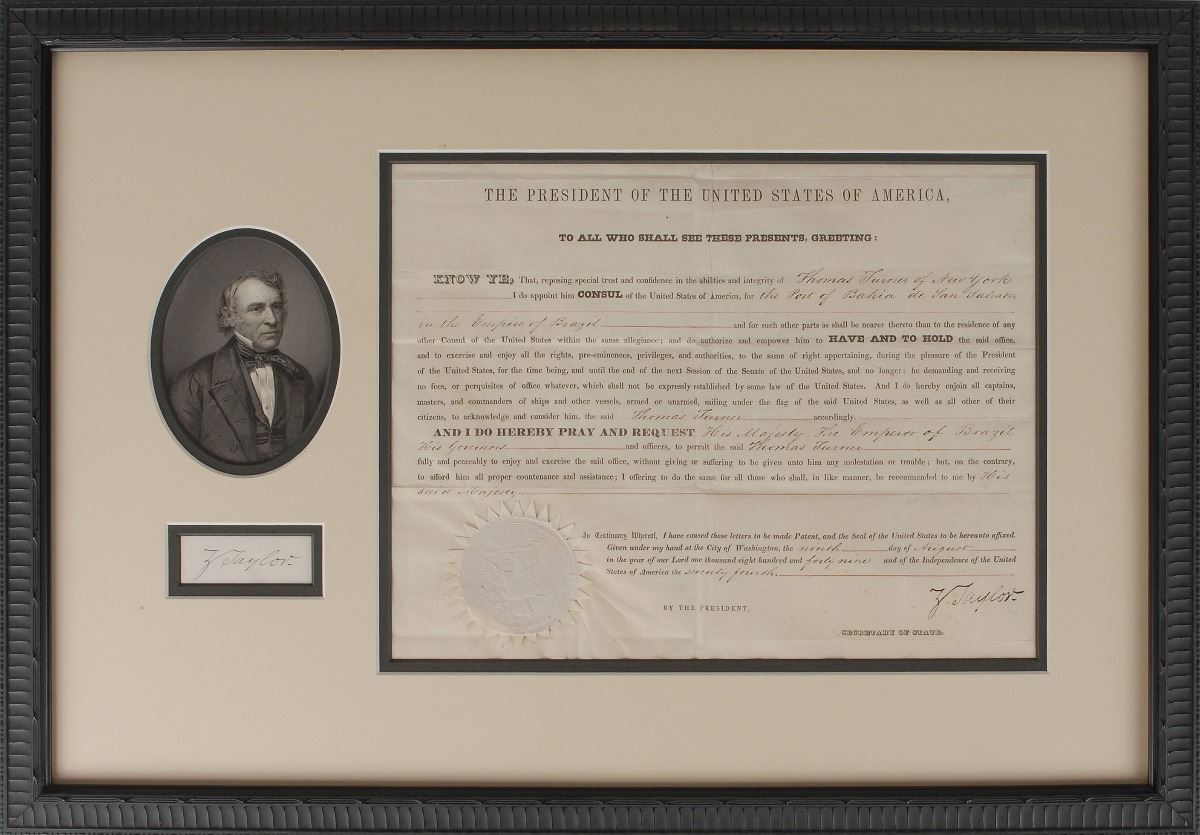 THE PRESIDENT OF THE UNITED STATES OF AMERICA,
TO ALL WHO SHALL SEE THESE PRESENTS, GREETING:
KNOW YE, That, reposing special trust and confidence in the abilties and integrity of Thomas Turner of New York
I do appoint him CONSUL of the United States of America, for the Port of Bahia de San Salvador
in the Empire of Brazil and for such other parts as shall be nearer thereto than to the residence of any
other Consul of the United States within the same allegiance; and do authorize and empower him to HAVE AND TO HOLD the said office,
and to exercise and enjoy all the rights, pre-eminences, privileges, and authorities, to the same of right appertaining, during the pleasure of the President
of the United States, for the time being, and until the end of the next Session of the Senate of the United States, and no longer: he demanding and receiving
no fees, or perquisites of office whatever, which shall not be expressly established by some law of the United States. And I do hereby enjoin all captains,
masters, and commanders of ships and other vessels, armed or unarmed, sailing under the flag of the said United States, as well as all other of their
citizens, to acknowledge and consider him, the said Thomas Turner accordingly.
AND I DO HEREBY PRAY AND REQUEST His Majesty, The Emperor of Brazil
His Governors and officers, to permit the said Thomas Turner
fully and peaceably to enjoy and exercise the said office, without giving or suffering to be given unto him any molestation or trouble; but, on the contrary,
to afford him all proper countenance and assistance; I offering to do the same for all those who shall, in like manner, be recommended to me by His
said Majesty.
In Testimony Whereof, I have caused these letters to be made Patent, and the Seal of the United States to be hereunto affixed.
Given under my hand at the City of Washington, the ninth day of August
in the year of our Lord one thousand eight hundred and forty nine and of the Independence of the United
States of America the seventy fourth.
Z. Taylor.
BY THE PRESIDENT,
SECRETARY OF STATE.
Z. Taylor.